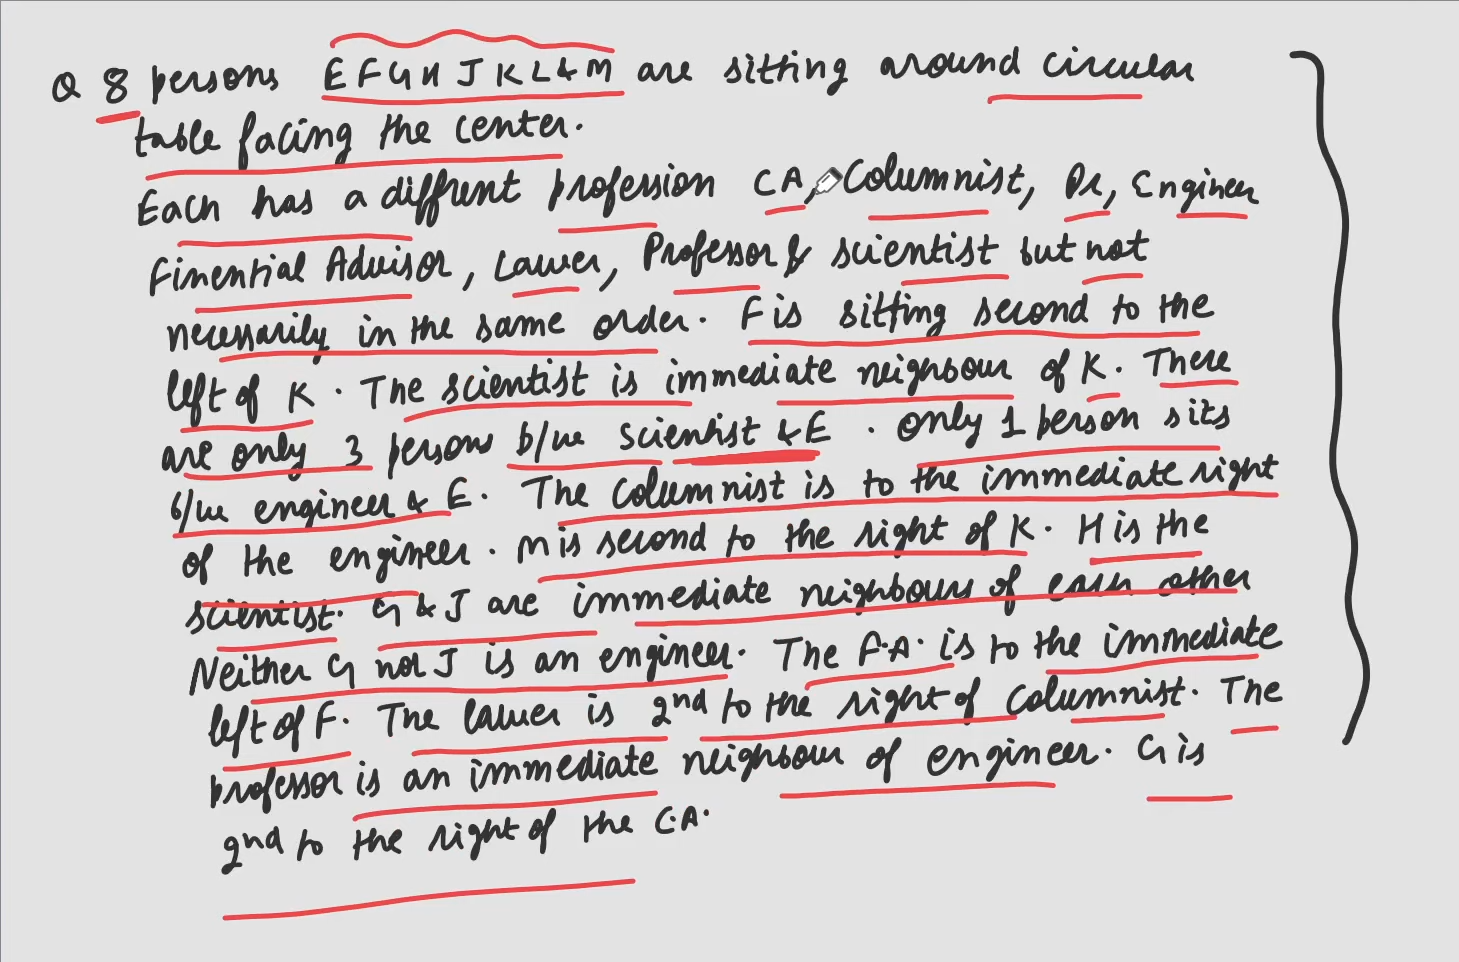 Q 8 persons E F G H J K L & M are sitting around circular
table facing the center.
Each has a diffrent profession CA, Columnist, Dr, Engineer
Finential Advisor, Lawer, Professor & scientist but not
necessarily in the same order. F is sitting second to the
left of K. The scientist is immediate neighbour of K. There
are only 3 persons b/w Scientist & E. only 1 person sits
b/w engineer & E. The Columnist is to the immediate right
of the engineer. M is second to the right of K. H is the
scientist. G & J are immediate neighbours of each other
Neither G nor J is an engineer. The F.A. is to the immediate
left of F. The lawer is 2nd to the right of columnist. The
professor is an immediate neighbour of engineer. G is
2nd to the right of the C.A.